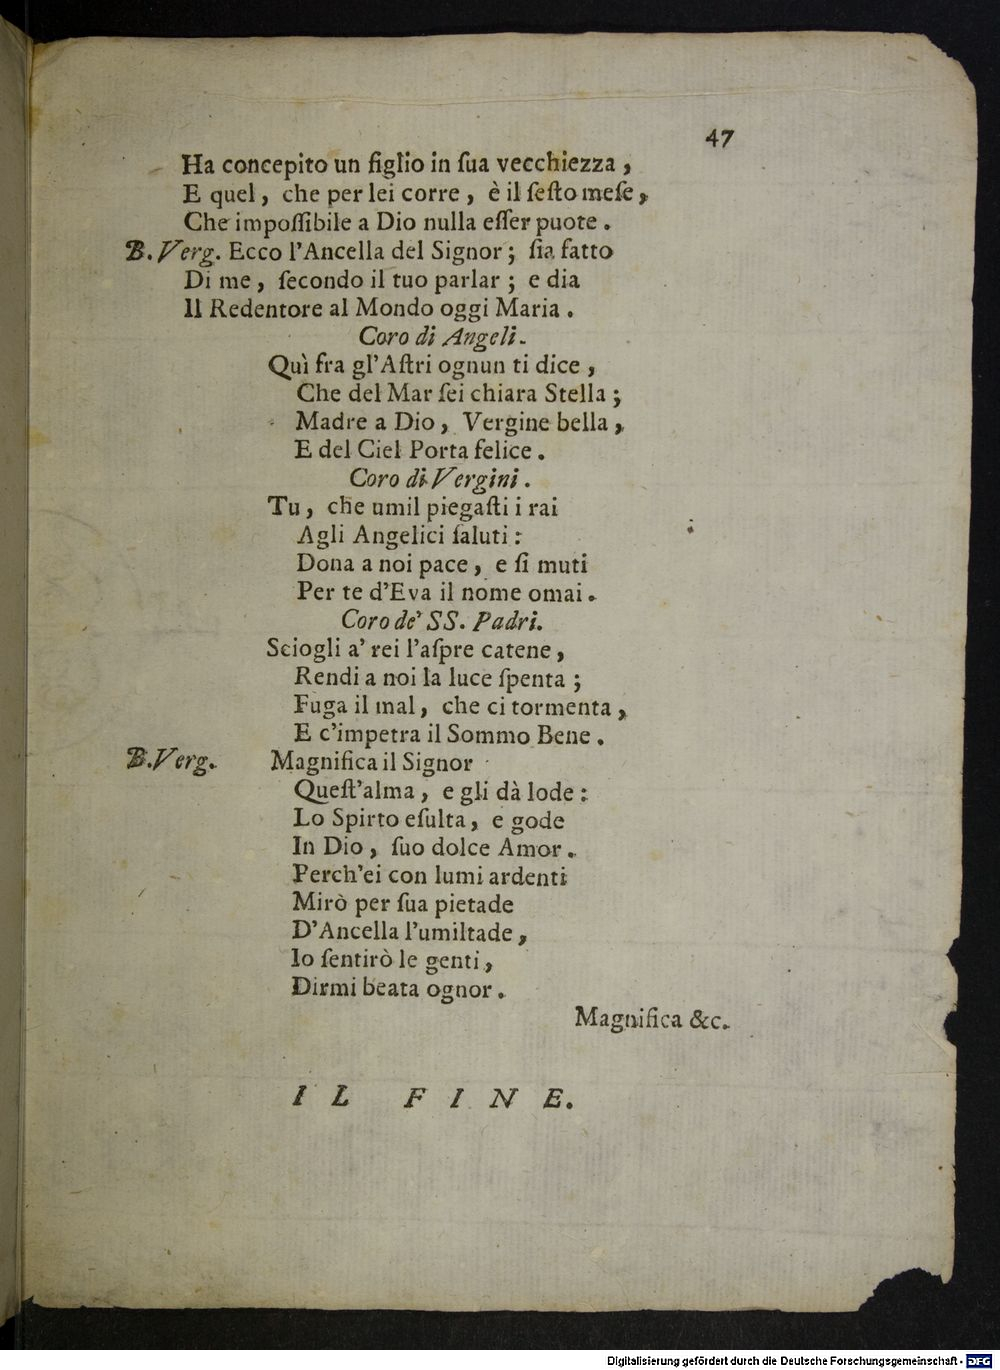 47
Ha concepito un figlio in ſua vecchiezza,
E quel, che per lei corre, è il ſeſto meſe,
Che impoſſibile a Dio nulla eſſer puote.
B. Verg. Ecco l'Ancella del Signor; ſia fatto
Di me, ſecondo il tuo parlar; e dia
Il Redentore al Mondo oggi Maria.
Coro di Angeli.
Quì fra gl'Aſtri ognun ti dice,
Che del Mar ſei chiara Stella;
Madre a Dio, Vergine bella,
E del Ciel Porta felice.
Coro di Vergini.
Tu, che umil piegaſti i rai
Agli Angelici ſaluti:
Dona a noi pace, e ſi muti
Per te d'Eva il nome omai.
Coro de' SS. Padri.
Sciogli a' rei l'aſpre catene,
Rendi a noi la luce ſpenta;
Fuga il mal, che ci tormenta,
E c'impetra il Sommo Bene.
B. Verg. Magnifica il Signor
Queſt'alma, e gli dà lode:
Lo Spirto eſulta, e gode
In Dio, ſuo dolce Amor.
Perch'ei con lumi ardenti
Mirò per ſua pietade
D'Ancella l'umiltade,
Io ſentirò le genti,
Dirmi beata ognor.
Magnifica &c.
IL FINE.
Digitalisierung gefördert durch die Deutsche Forschungsgemeinschaft - DFG